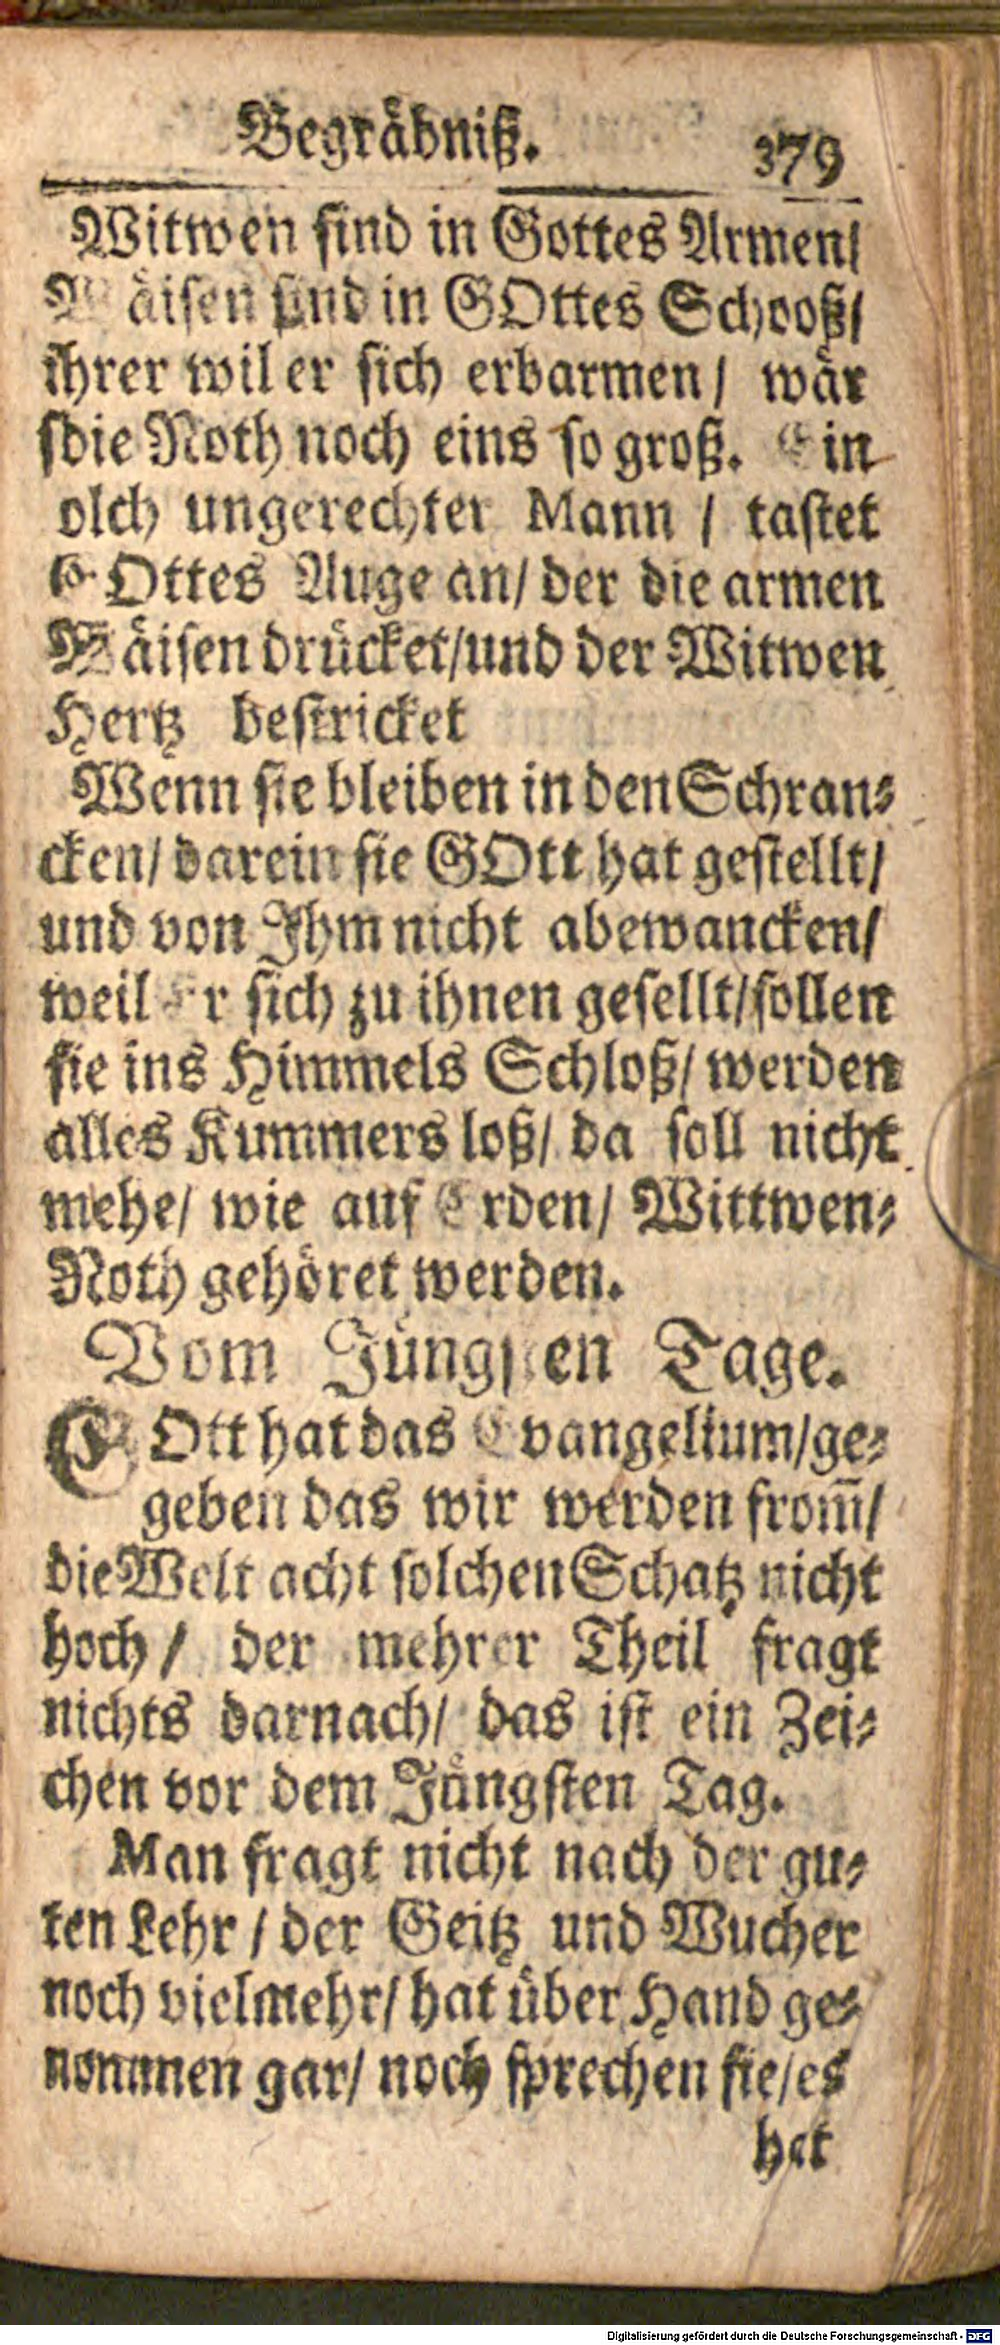 Begräbniß. 379
Witwen sind in Gottes Armen/
Wäisen sind in GOttes Schooß/
ihrer wil er sich erbarmen/ wär
sdie Noth noch eins so groß. Ein
olch ungerechter Mann / tastet
GOttes Auge an/ der die armen
Wäisen drücket/und der Witwen
Hertz bestricket
Wenn sie bleiben in den Schran⸗
cken/ darein sie GOtt hat gestellt/
und von Ihm nicht abewancken/
weil Er sich zu ihnen gesellt/sollen
sie ins Himmels Schloß/ werden
alles Kummers loß/ da soll nicht
mehe/ wie auf Erden/ Wittwen⸗
Noth gehöret werden.
Vom Jüngsten Tage.
GOtt hat das Evangelium/ge⸗
geben das wir werden from̃/
die Welt acht solchen Schatz nicht
hoch / der mehrer Theil fragt
nichts darnach/ das ist ein Zei⸗
chen vor dem Jüngsten Tag.
Man fragt nicht nach der gu⸗
ten Lehr / der Geitz und Wucher
noch vielmehr/ hat über Hand ge⸗
nommen gar/ noch sprechen sie/es
hat
Digitalisierung gefördert durch die Deutsche Forschungsgemeinschaft - DFG